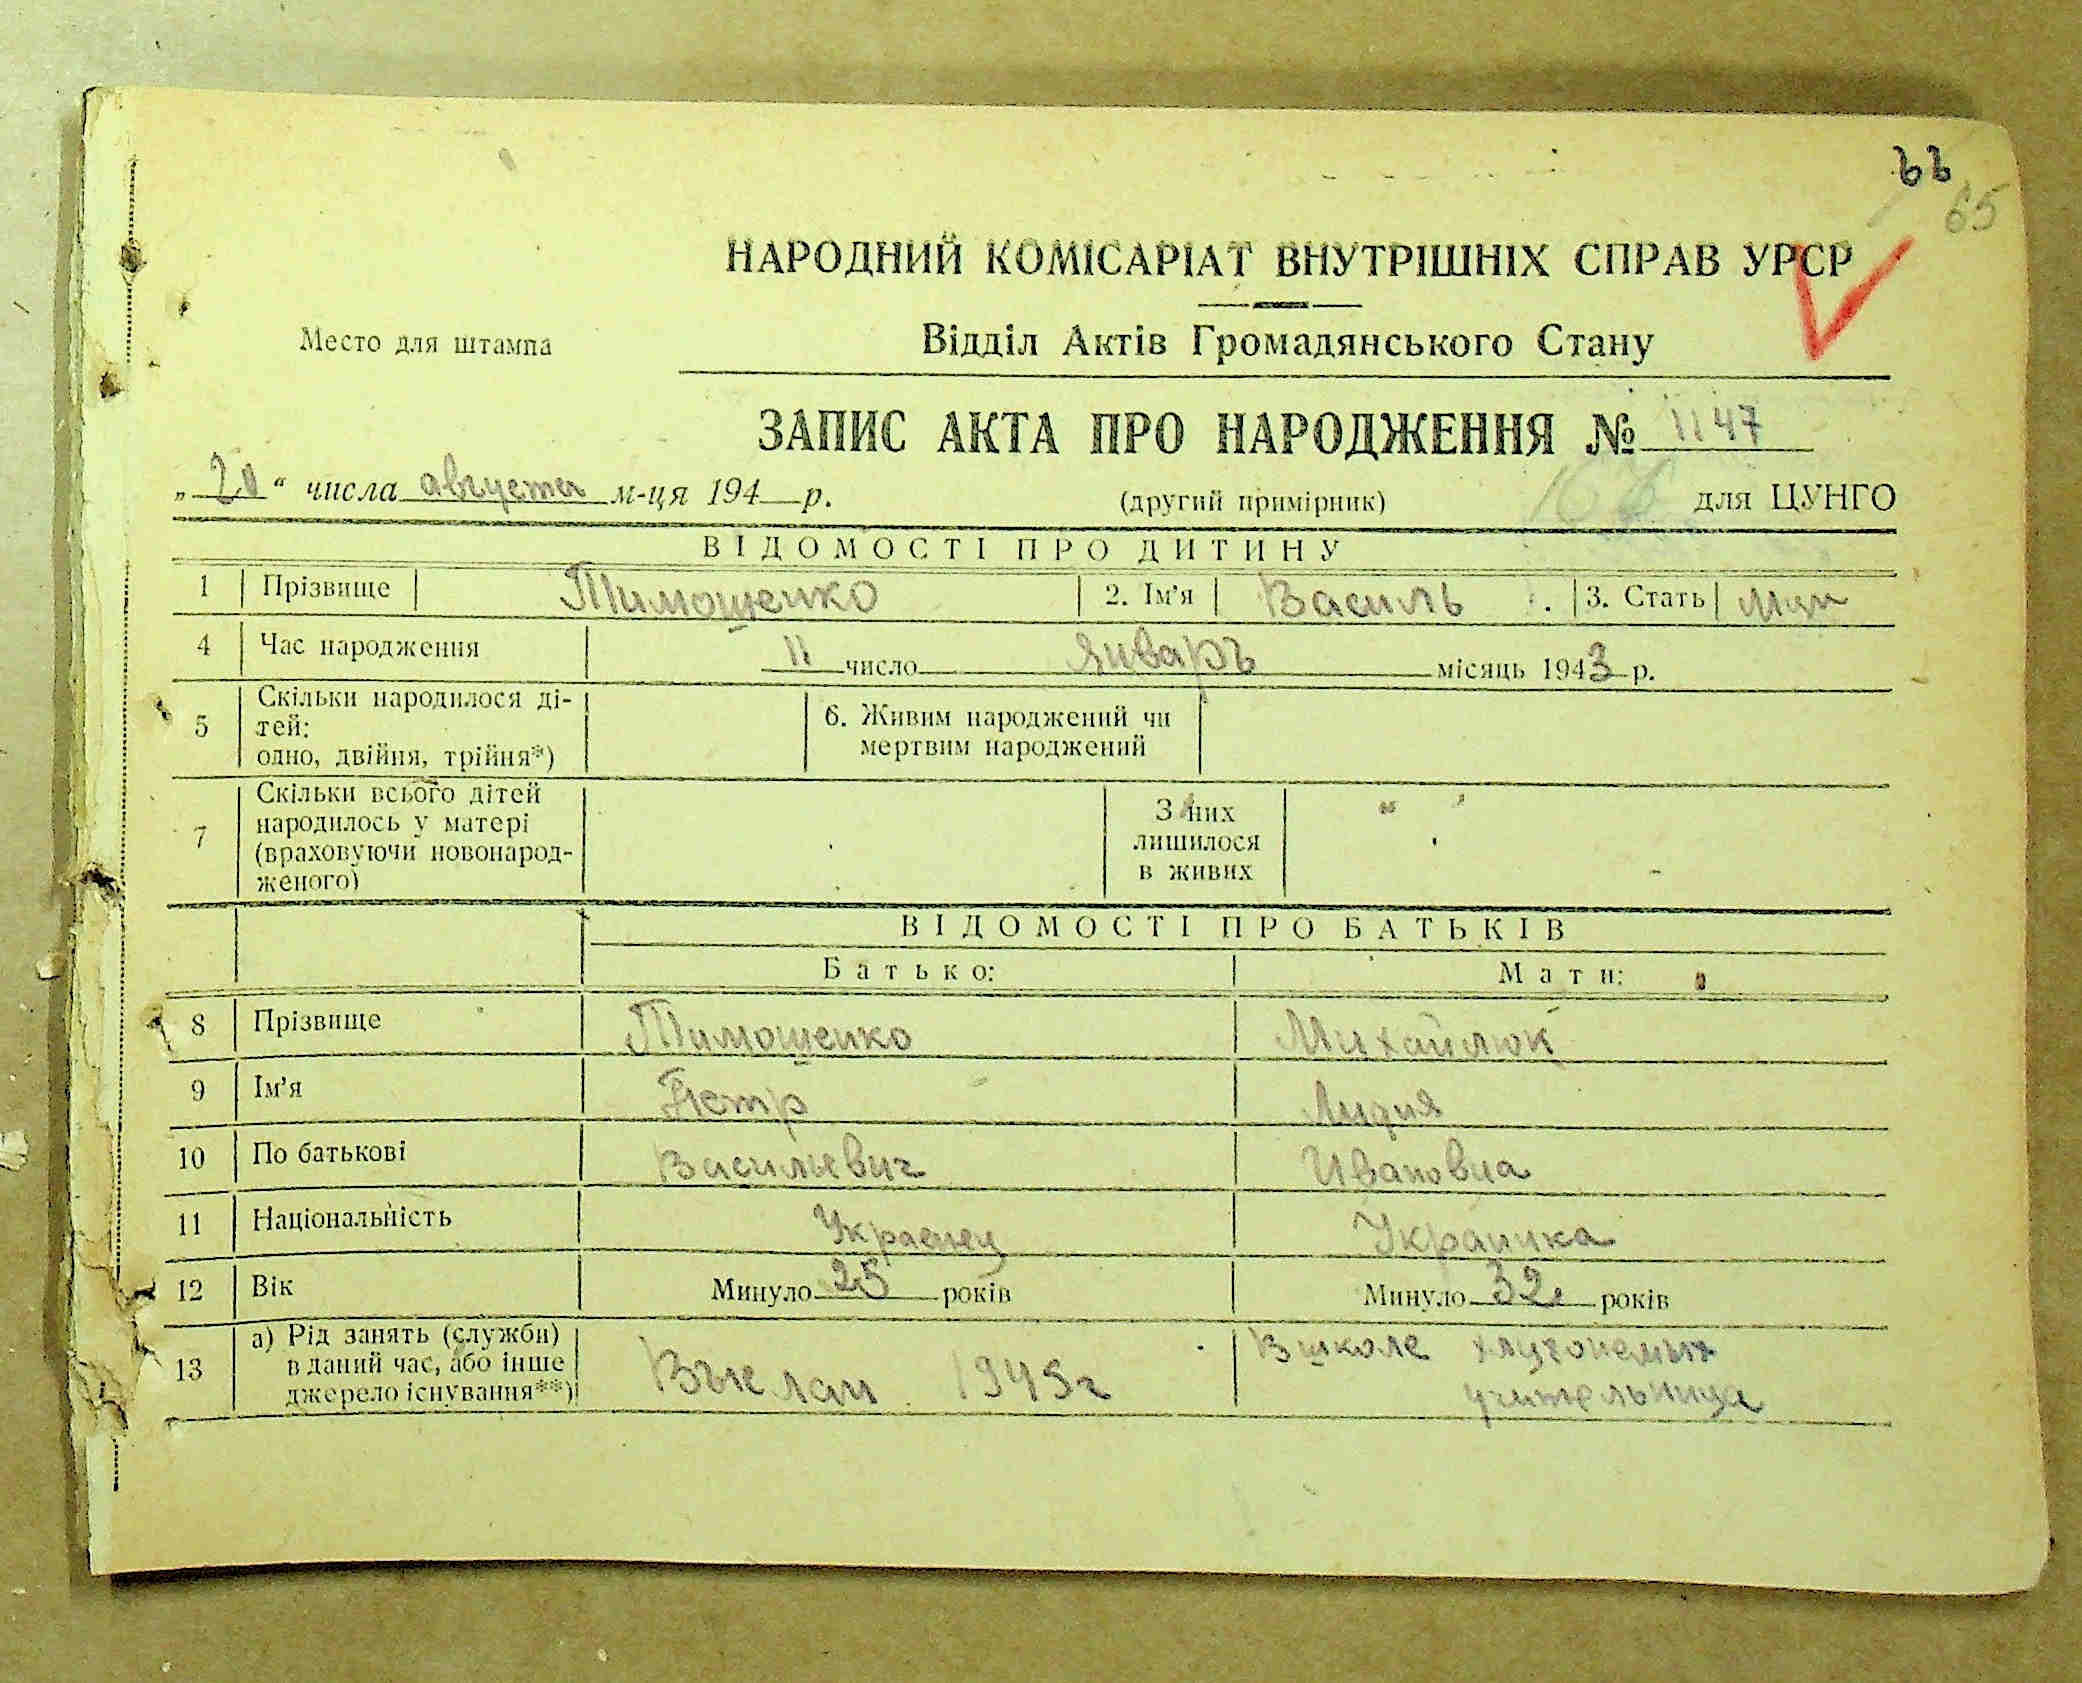 66
65
НАРОДНИЙ КОМІСАРІАТ ВНУТРІШНІХ СПРАВ УРСР
Место для штампа
Відділ Актів Громадянського Стану
ЗАПИС АКТА ПРО НАРОДЖЕННЯ № 1147
„20“ числа августа м-ця 194 р. (другий примірник) для ЦУНГО
ВІДОМОСТІ ПРО ДИТИНУ
1 Прізвище Тимошенко 2. Ім'я Василь 3. Стать Муж
4 Час народження 11 число январь місяць 1943 р.
5 Скільки народилося ді-
тей:
одно, двійня, трійня*)
6. Живим народжений чи
мертвим народжений
7 Скільки всього дітей
народилось у матері
(враховуючи новонарод-
женого)
З них
лишилося
в живих
ВІДОМОСТІ ПРО БАТЬКІВ
Батько: Мати:
8 Прізвище Тимошенко Михайлюк
9 Ім'я Петр Лидия
10 По батькові Васильевич Ивановна
11 Національність Украенец Украинка
12 Вік Минуло 25 років Минуло 32 років
13 а) Рід занять (служби)
в даний час, або інше
джерело існування**)
1945г
В школе глухонемых
учительница